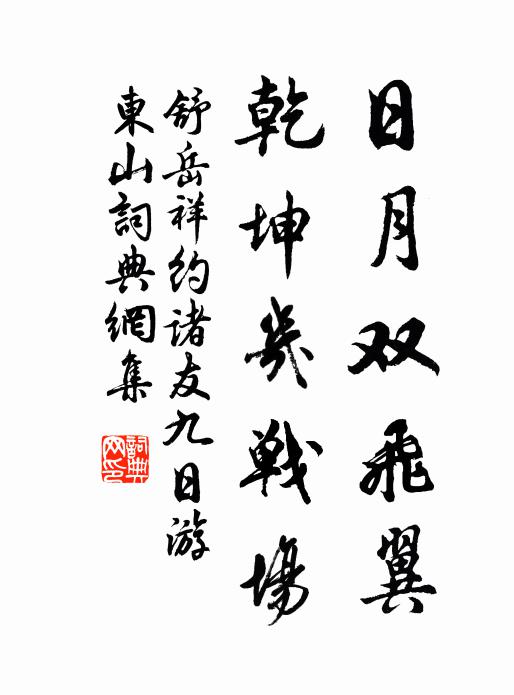 日月双飛翼
乾坤幾戰場
舒岳祥約諸友九日游
東山詞典網集
詞典
网印